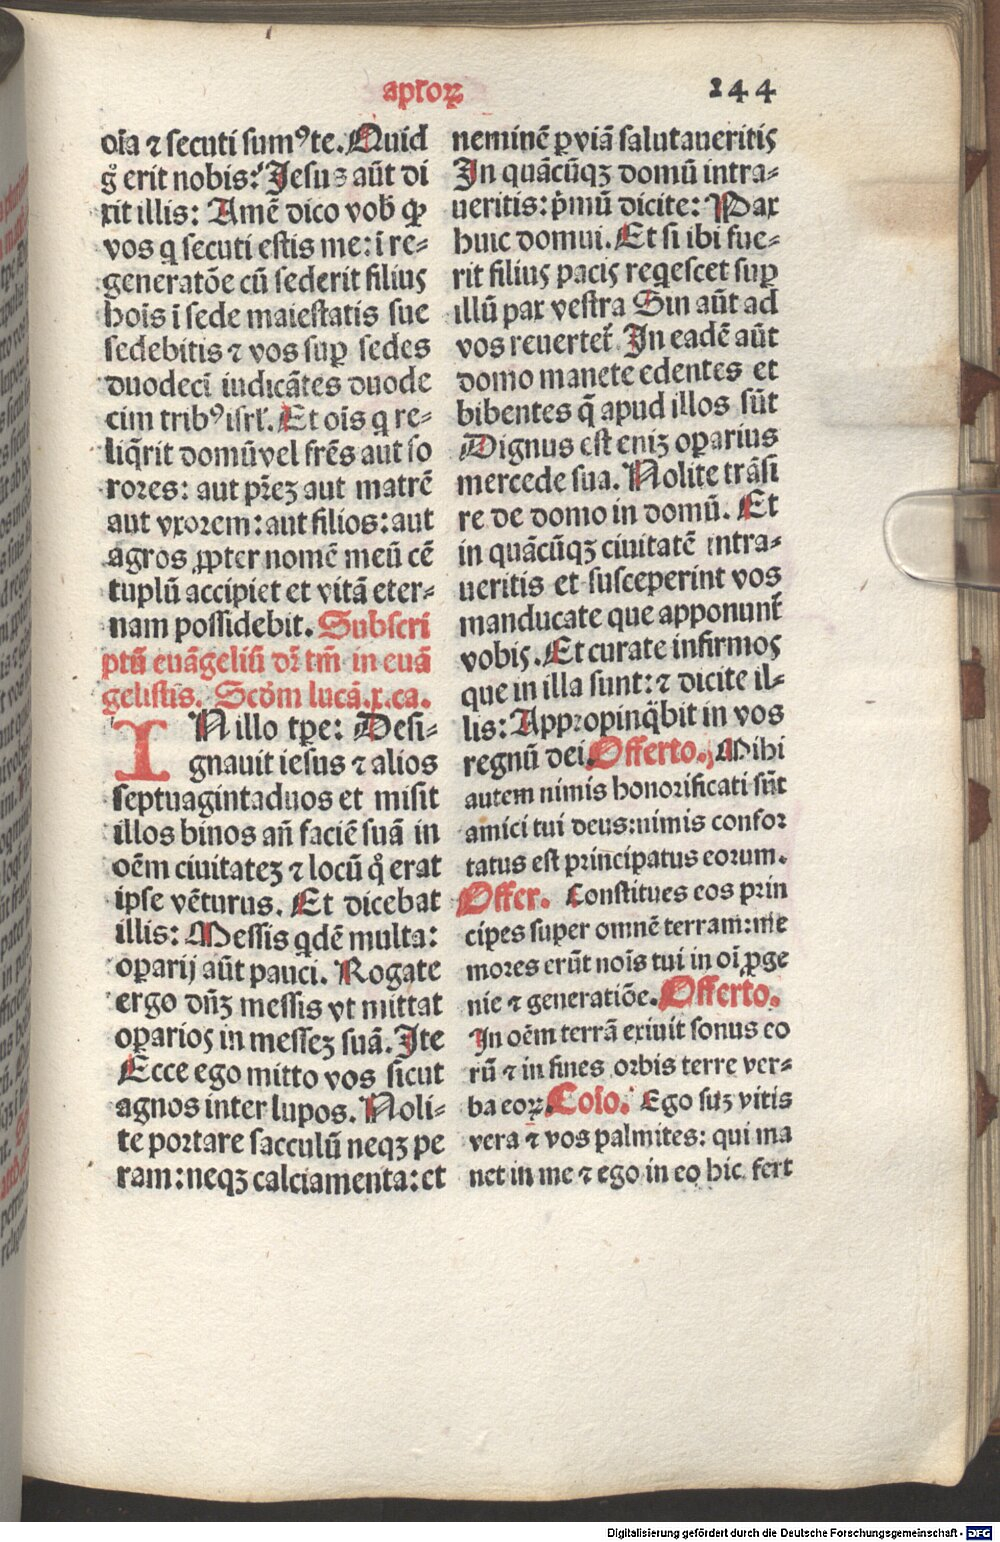 apl'oꝝ
244
oĩa ⁊ secuti sumꝰ te. Quid
g̊ erit nobis? Jesus aũt di
xit illis: Amẽ dico vob̃ ꝙ
vos q secuti estis me: ĩ re-
generatõe cũ sederit filius
hoĩs ĩ sede maiestatis sue
sedebitis ⁊ vos suꝑ sedes
duodecĩ iudicãtes duode
cim tribꝰ isrl'. Et oĩs q re-
liq̃rit domũ vel frẽs aut so
rores: aut pr̃eꝫ aut matrẽ
aut vxorem: aut filios: aut
agros ꝓpter nomẽ meũ cẽ
tuplũ accipiet et vitã eter-
nam possidebit. Subscri
ptũ euãgeliũ dr̃ tm̃ in euã
gelistis. Scõm lucã. x. ca.
IN illo tꝑe: Desi-
gnauit iesus ⁊ alios
septuagintaduos et misit
illos binos añ faciẽ suã in
oẽm ciuitateꝫ ⁊ locũ q̊ erat
ipse vẽturus. Et dicebat
illis: Messis qdẽ multa:
oꝑarij aũt pauci. Rogate
ergo dñꝫ messis vt mittat
oꝑarios in messeꝫ suã. Ite
Ecce ego mitto vos sicut
agnos inter lupos. Noli-
te portare sacculũ neqꝫ pe
ram: neqꝫ calciamenta: et
neminẽ ꝑ viã salutaueritis
In quãcũqꝫ domũ intra-
ueritis: p̃mũ dicite: Pax
huic domui. Et si ibi fue-
rit filius pacis reqescet suꝑ
illũ pax vestra Sin aũt ad
vos reuertet̃. In eadẽ aũt
domo manete edentes et
bibentes q̃ apud illos sũt
Dignus est eniꝫ oꝑarius
mercede sua. Nolite trãsi
re de domo in domũ. Et
in quãcũqꝫ ciuitatẽ intra-
ueritis et susceperint vos
manducate que apponunt̃
vobis. Et curate infirmos
que in illa sunt: ⁊ dicite il-
lis: Appropinq̃bit in vos
regnũ dei. Offerto. Mihi
autem nimis honorificati sũt
amici tui deus: nimis confor
tatus est principatus eorum.
Offer. Constitues eos prin
cipes super omnẽ terram: me
mores erũt noĩs tui in oĩ ꝓge
nie ⁊ generatiõe. Offerto.
In oẽm terrã exiuit sonus eo
rũ ⁊ in fines orbis terre ver-
ba eoꝝ. Coĩo. Ego suꝫ vitis
vera ⁊ vos palmites: qui ma
net in me ⁊ ego in eo hic fert
Digitalisierung gefördert durch die Deutsche Forschungsgemeinschaft - DFG